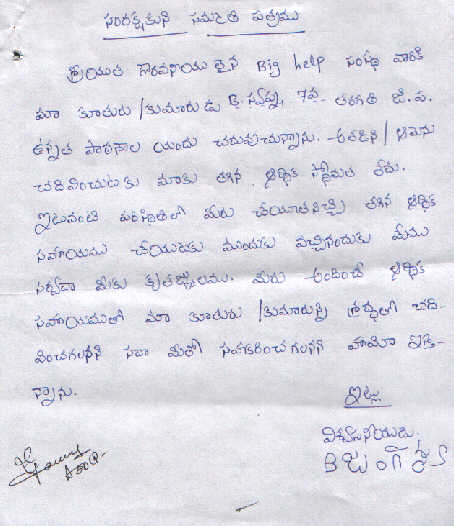 సంరక్షకుని సమ్మతి పత్రము
శ్రీయుత గౌరవనీయులైన Big help సంస్థ వారికి
మా కూతురు / కుమారుడు కె. స్వప్న, 7వ తరగతి జి.ప.
ఉన్నత పాఠశాల యందు చదువుచున్నారు. అతడిని / ఆమెను
చదివించుటకు మాకు తగిన ఆర్థిక స్తోమత లేదు.
ఇటువంటి పరిస్థితిలో మీరు చేయూతనిచ్చి తగిన ఆర్థిక
సహాయము చేయుటకు ముందుకు వచ్చినందుకు మేము
సర్వదా మీకు కృతజ్ఞులము. మీరు అందించే ఆర్థిక
సహాయముతో మా కూతురు / కుమారున్ని శ్రద్ధతో చది-
వించగలనని సదా మీతో సహకరించగలనని హామీ ఇస్తు-
న్నాను.
ఇట్లు
విశ్వసనీయుడు.